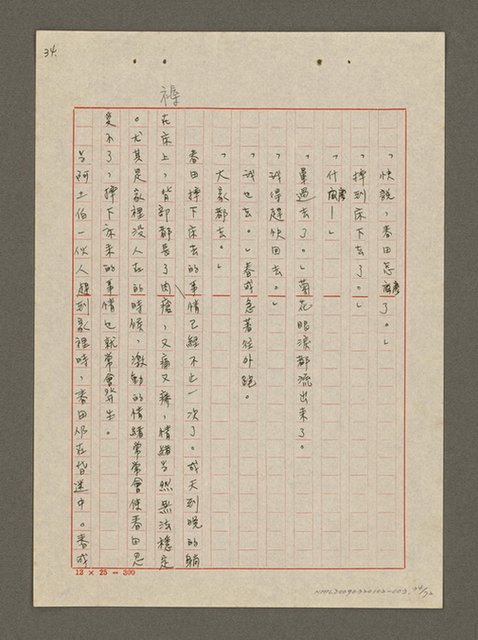 34.
「快說，春田怎麼了。」
「摔到床下去了。」
「什麼—」
「暈過去了。」菊花眼淚都流出來了。
「我得趕快回去。」
「我也去。」春成急著往外跑。
「大家都去。」
春田摔下床去的事情已經不止一次了。成天到晚的躺
在床上，背部都長了肉瘡，又痛又癢，情緒當然無法穩定
。尤其是家裡沒人在的時候，激動的情緒常常會使春田忍
受不了，摔下床來的事情也就常會發生。
當阿土伯一伙人趕到家裡時，春田仍在昏迷中。春成
褥
12 × 25 = 300
NML20090320102-003.
34/72